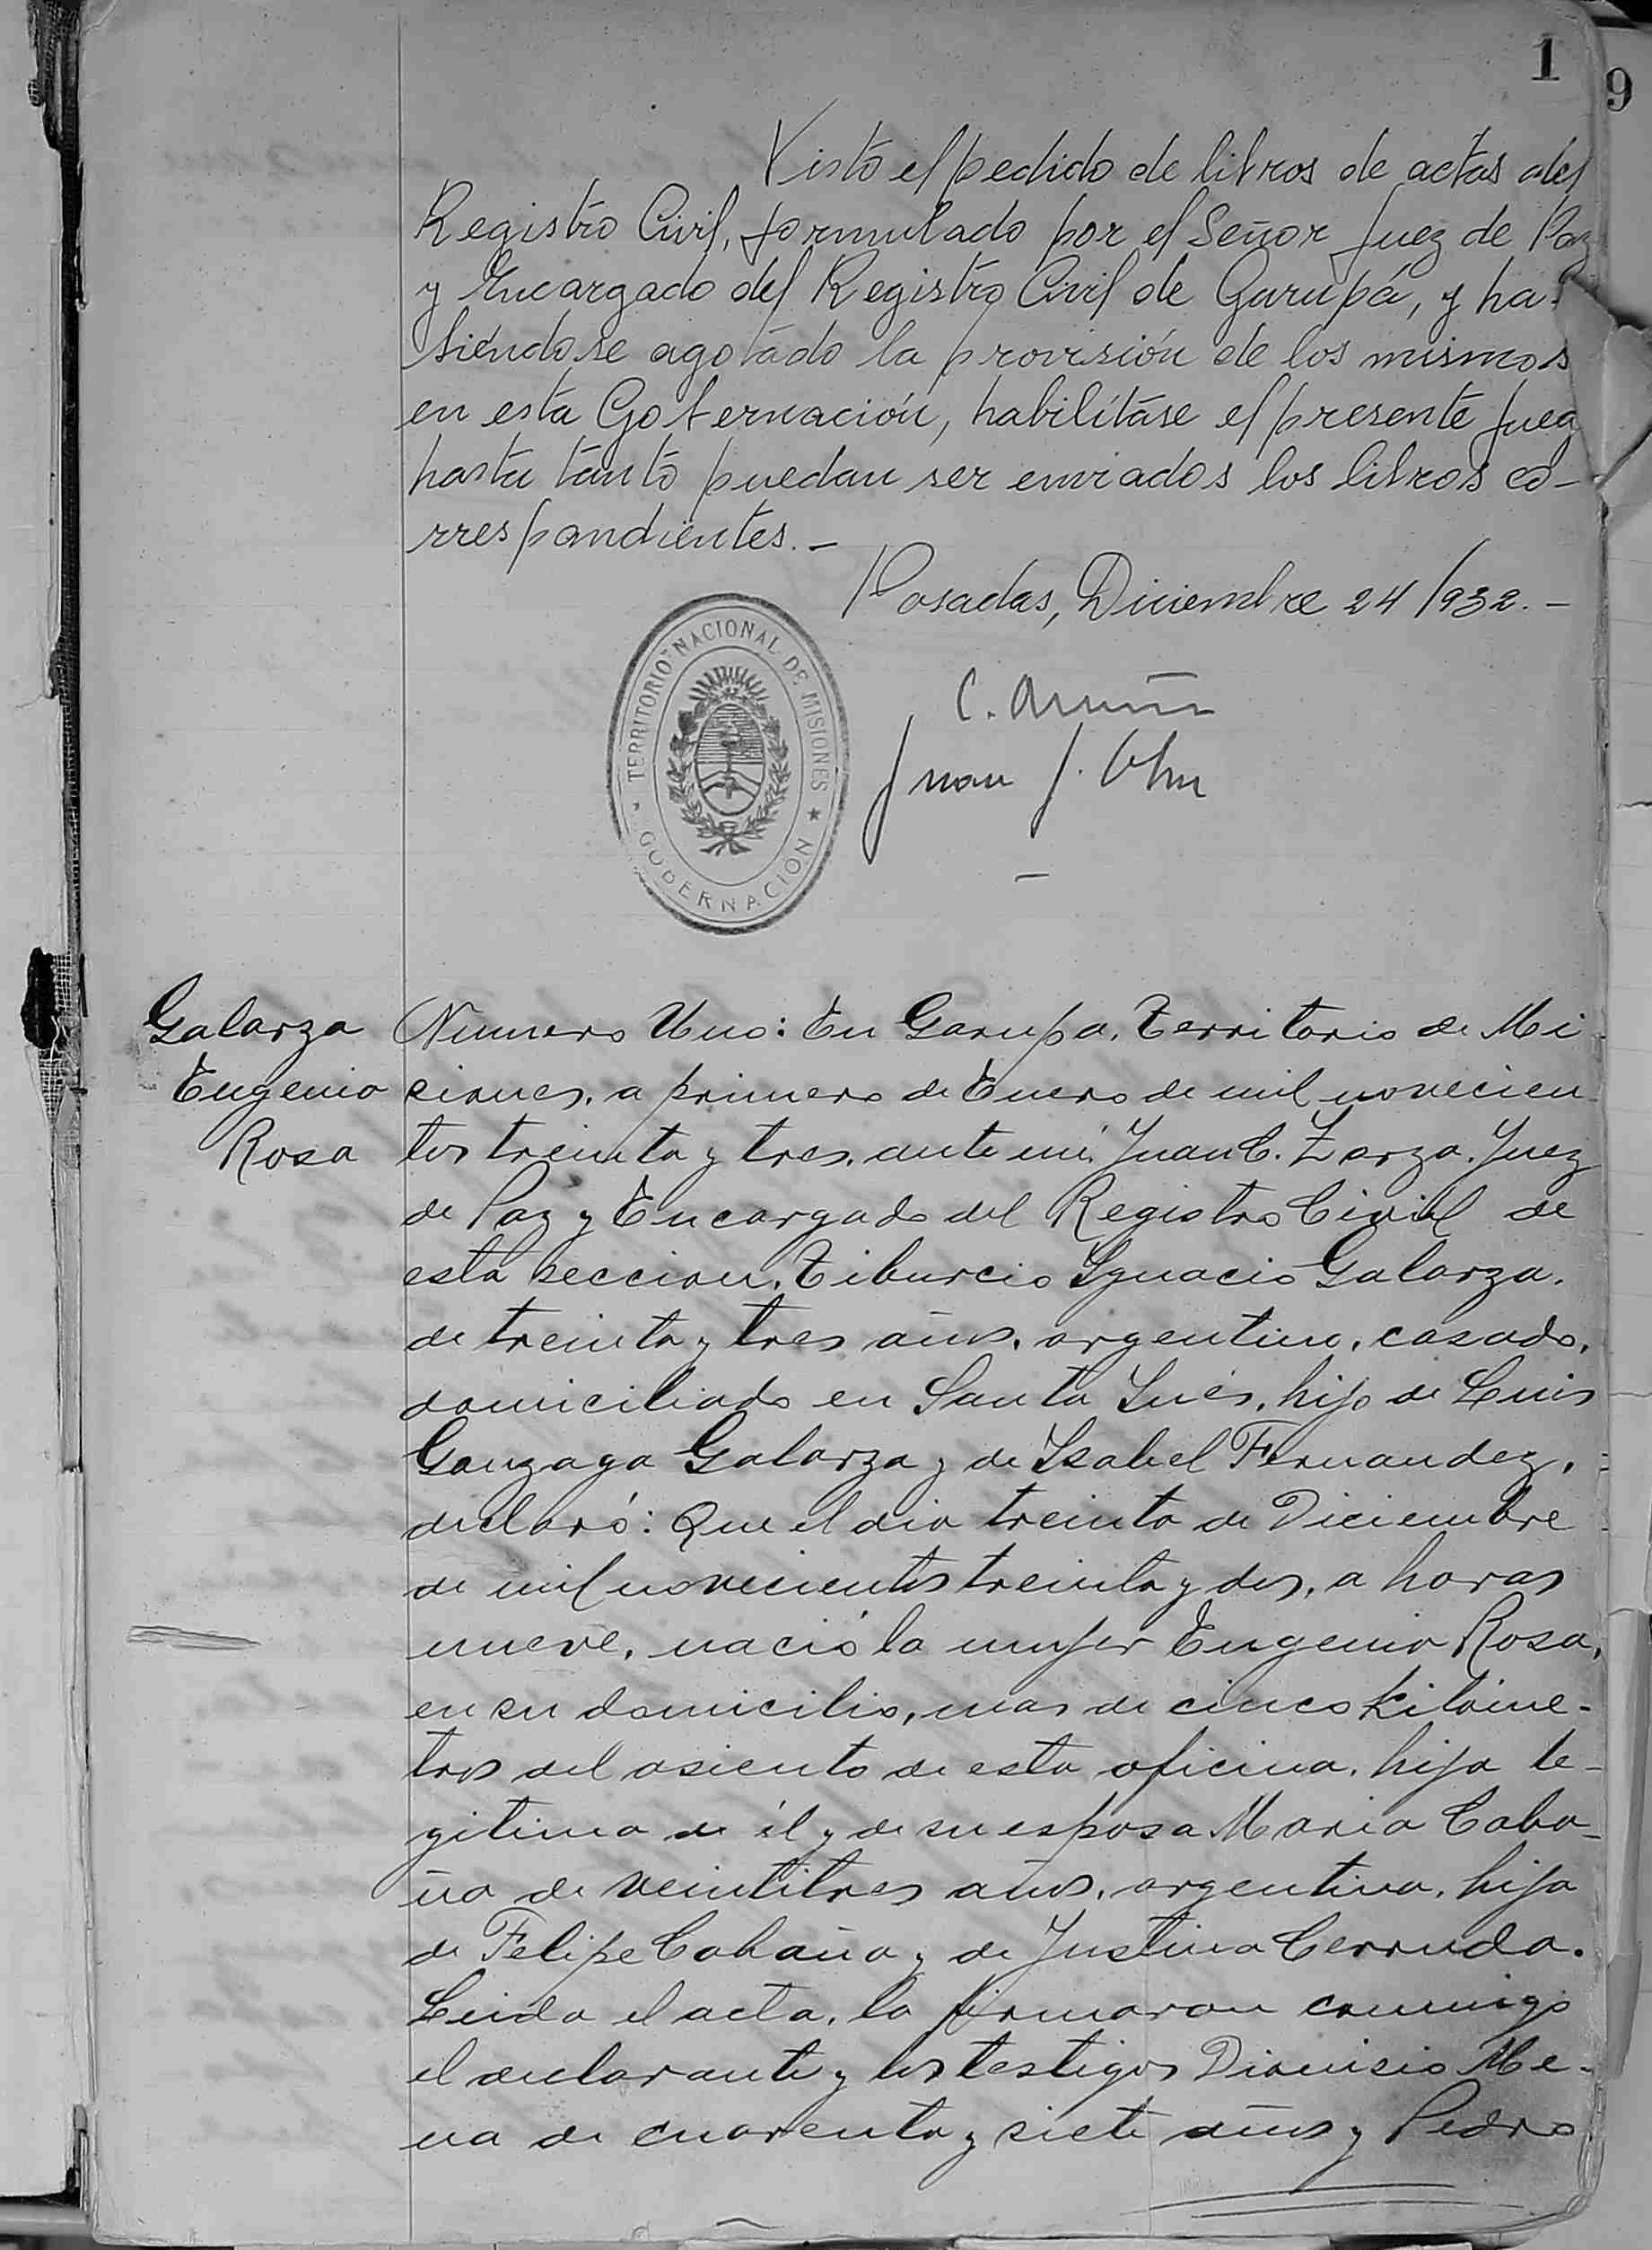 1
9
Visto el pedido de libros de actas del
Registro Civil, formulado por el Señor Juez de Paz
y Encargado del Registro Civil de Garupá, y ha-
biéndose agotado la provisión de los mismos
en esta Gobernación, habilítase el presente
hasta tanto puedan ser enviados los libros co-
rrespondientes.-
Posadas, Diciembre 24/932.-
TERRITORIO NACIONAL DE MISIONES
GOBERNACION
C.
Juan J.
Galarza
Eugenia
Rosa
Numero Uno: En Garupa, Territorio de Mi
ciones, a primero de Enero de mil novecien
tos treinta y tres, ante mi, Juan C. Zarza, Juez
de Paz y Encargado del Registro Civil de
esta seccion, Tiburcio Ygnacio Galarza,
de treinta y tres años, argentino, casado,
domiciliado en Santa Ines, hijo de Luis
Gonzaga Galarza y de Isabel Fernandez,
declaró: Que el dia treinta de Diciembre
de mil novecientos treinta y dos, a horas
nueve, nació la mujer Eugenia Rosa,
en su domicilio, mas de cinco kilome-
tros del asiento de esta oficina, hija le-
gitima de él y de su esposa Maria Caba-
ña de veintitres años, argentina, hija
de Felipe Cabaña y de Justina Cerruda.
Leida el acta, la firmaron conmigo
el declarante y los testigos Dionisio Me-
na de cuarenta y siete años y Pedro